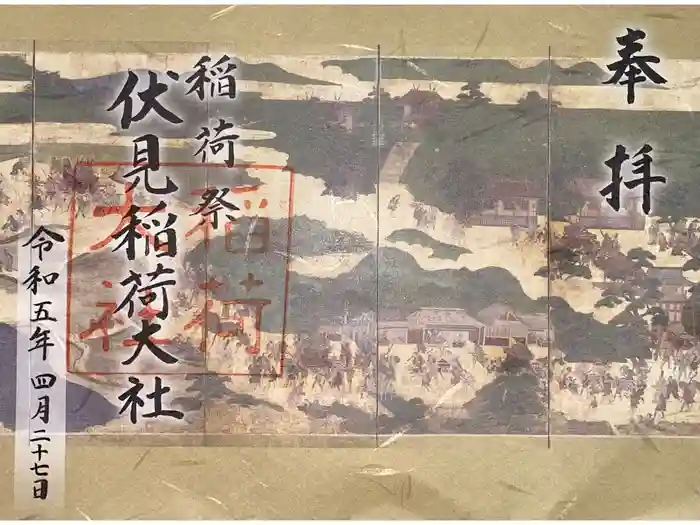 奉拝
稲荷祭
伏見稲荷大社
令和五年四月二十七日
稲荷
大社